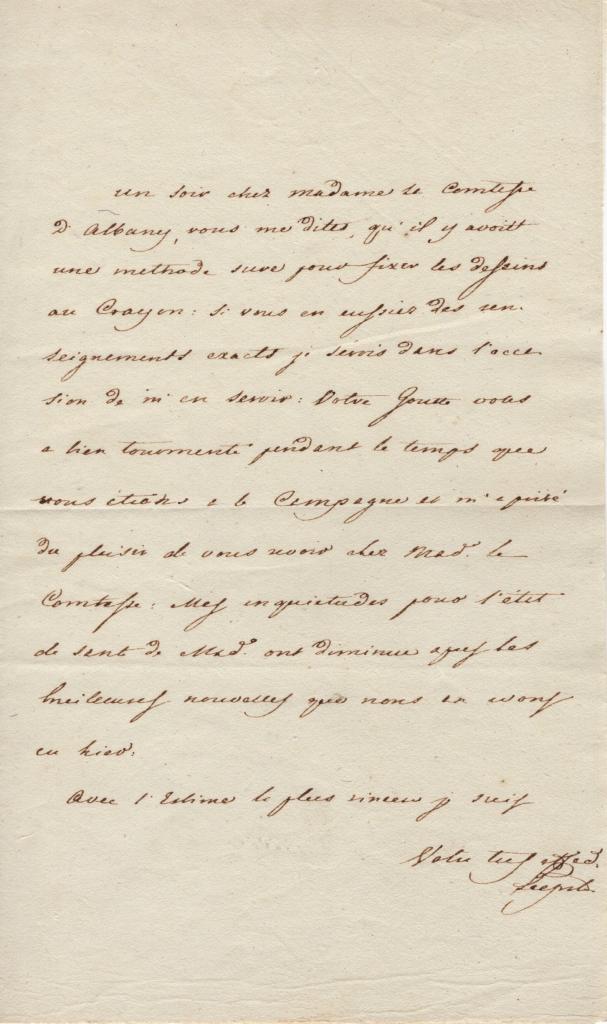 un soir chez madame la Comtesse
D'Albany, vous me dites, qu'il y avoitt
une methode sure pour fixer les desseins
au Crayon: si vous en eussiez des ren-
seignements exacts je serois dans l'occa-
sion de m'en servir: Votre Goutte vous
a bien tourmenté pendant le temps que
vous etiez a la Campagne et m'a privé
du plaisir de vous revoir chez Mad.e la
Comtesse: Mes inquietudes pour l'état
de santé de Mad.e ont diminue apres les
meilleures nouvelles que nous en avons
eu hier:
Avec l'Estime la plus sincere je suis
Votre tres affec.